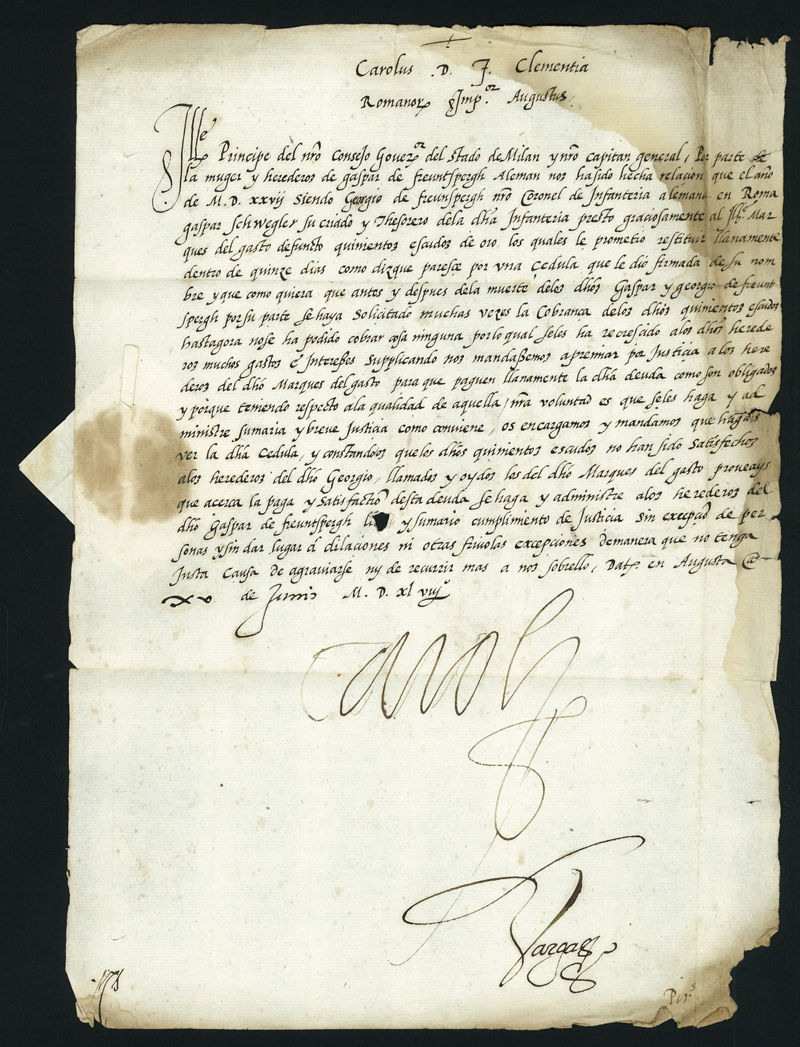 Carolus .D. F. Clementia
Romanor Imp.or Augustus.
Ille
Principe del nro Consejo Gouer.or del stado de Milan y nro capitan general, Por parte de
la muger y herederos de gaspar de freuntspergh Aleman nos ha sido hecha relacion que el año
de M.D. xxvij siendo Georgio de freunspergh nro Coronel de Infanteria alemana en Roma
gaspar Schwegler su criado y Thesorero dela dha Infanteria presto graciosamente al Ill.e Mar
ques del gasto defuncto quinientos escudos de oro los quales le prometio restituir llanamente
dentro de quinze dias como dizque paresce por vna Cedula que le dio firmada de su nom
bre y que como quiera que antes y despues dela muerte delos dhos Gaspar y georgio de freunt
spergh por su parte se haya solicitado muchas vezes la Cobranca delos dhos quinientos escudos
hastagora nose ha podido cobrar cosa ninguna por lo qual seles ha recrescido alos dhos herede
ros muchos gastos è Interesses supplicando nos mandassemos apremiar por Justicia alos here
deros del dho Marques del gasto para que paguen llanamente la dha deuda como son obligados
y porque teniendo respecto ala qualidad de aquella, nra voluntad es que seles haga y ad
ministre sumaria y breue Justicia como conviene, os encargamos y mandamos que hagais
ver la dha Cedula, y constandoos que los dhos quinientos escudos no han sido satisfechos
alos herederos del dho Georgio, llamados y oydos los del dho Marques del gasto proueays
que acerca la paga y satisfaction desta deuda se haga y administre alos herederos del
dho Gaspar de freuntspergh y sumario cumplimiento de Justicia sin excepcion de per
sonas y sin dar lugar à dilaciones ni otras friuolas excepciones demanera que no tenga
Justa Causa de agrauiarse ny de recurrir mas a nos sobrello, Dat. en Augusta @
xv de Junio M. D. xl viij
Carol
Vargas